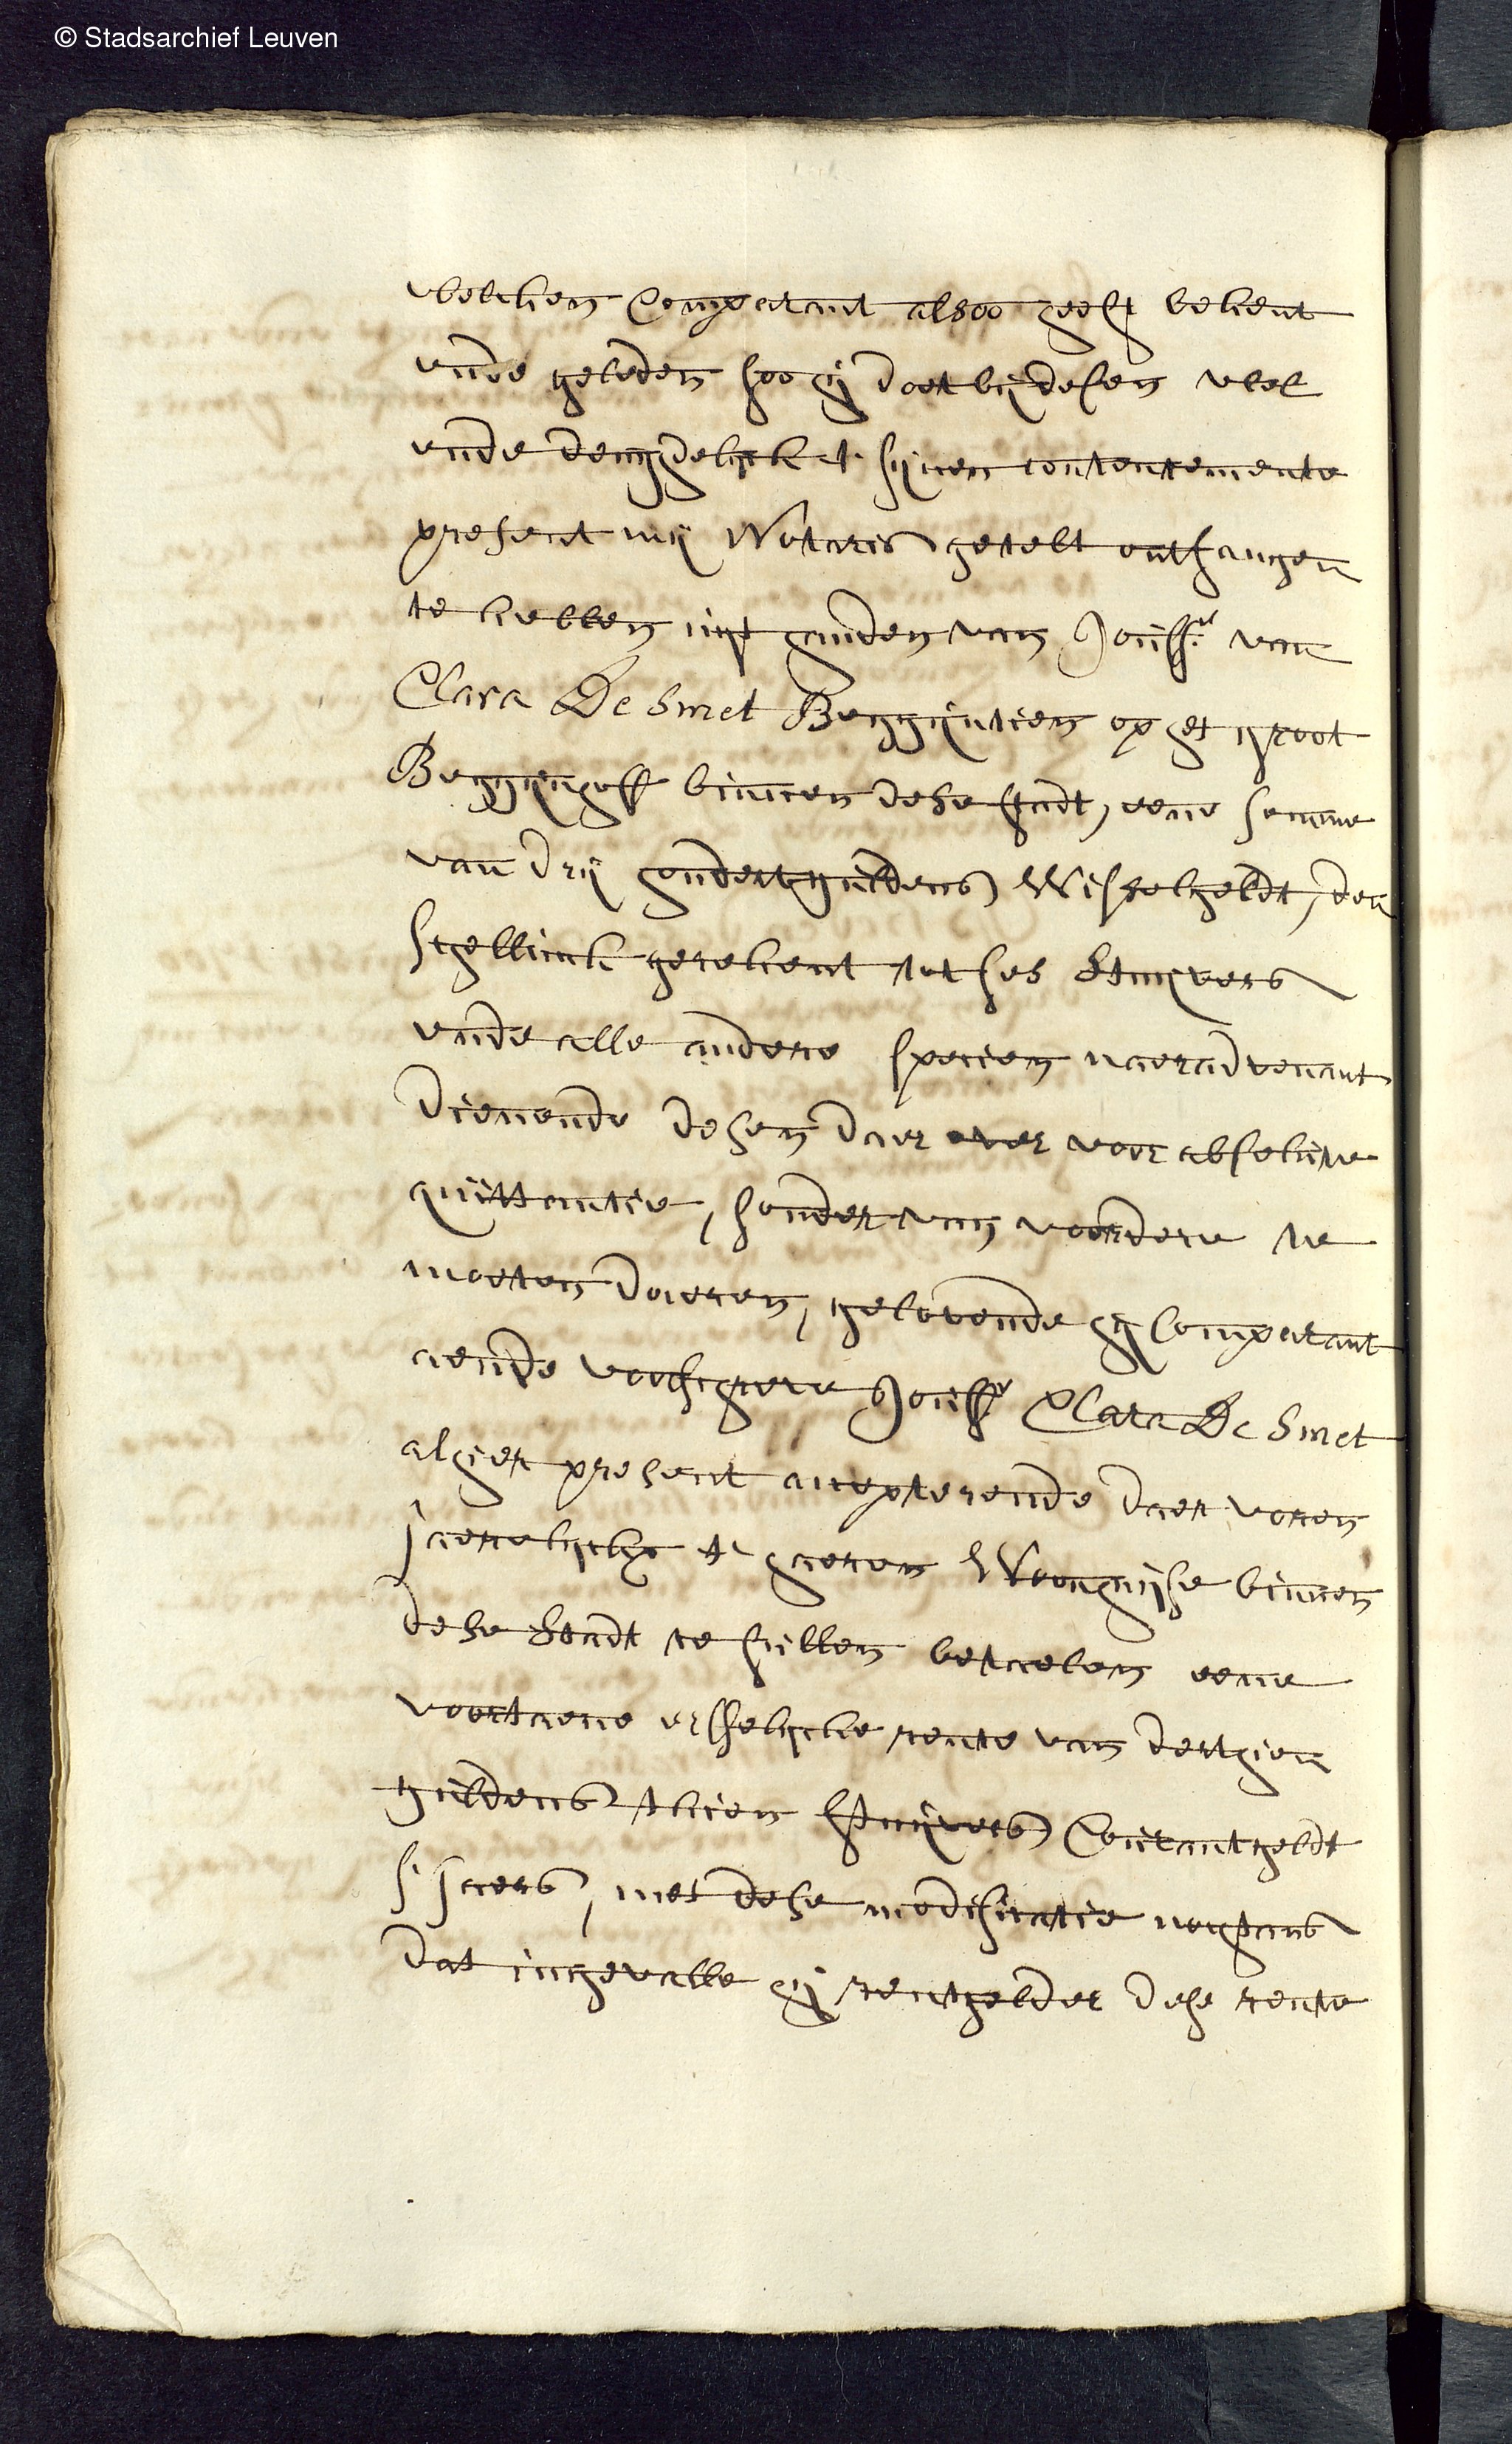 © Stadsarchief Leuven
welcken Comparant alsoo heeft bekent
ende geleden soo hij doet bij desen wel
ende deughdelyck t' sijnen contentemente
present mij Notaris getelt ontfangen
te hebben uijt handen van Jouffe. van
Clara De Smet Beggijntien op het groot
Beggijnhoff binnen dese stadt, eene somme
van drij hondert guldens Wisselgeldt, den
schellinck gerekent tot ses stuyvers
ende alle andere specien naer advenant
dienende desen daer over voor absolute
quittantie, sonder van voordere te
moeten doceren, gelovende hij Comparant
aende voorschreve Jouffe Clara De Smet
alhier present accepterende daer voren
jaerelyckx t' haeren Woonhuyse binnen
dese Stadt te sullen betaelen eene
voortaene erffelycke rente van derthien
guldens thien stuyvers Courantgeldt
s' jaers, met dese modificatie nochtans
dat ingevalle hij rentgelder dese rente